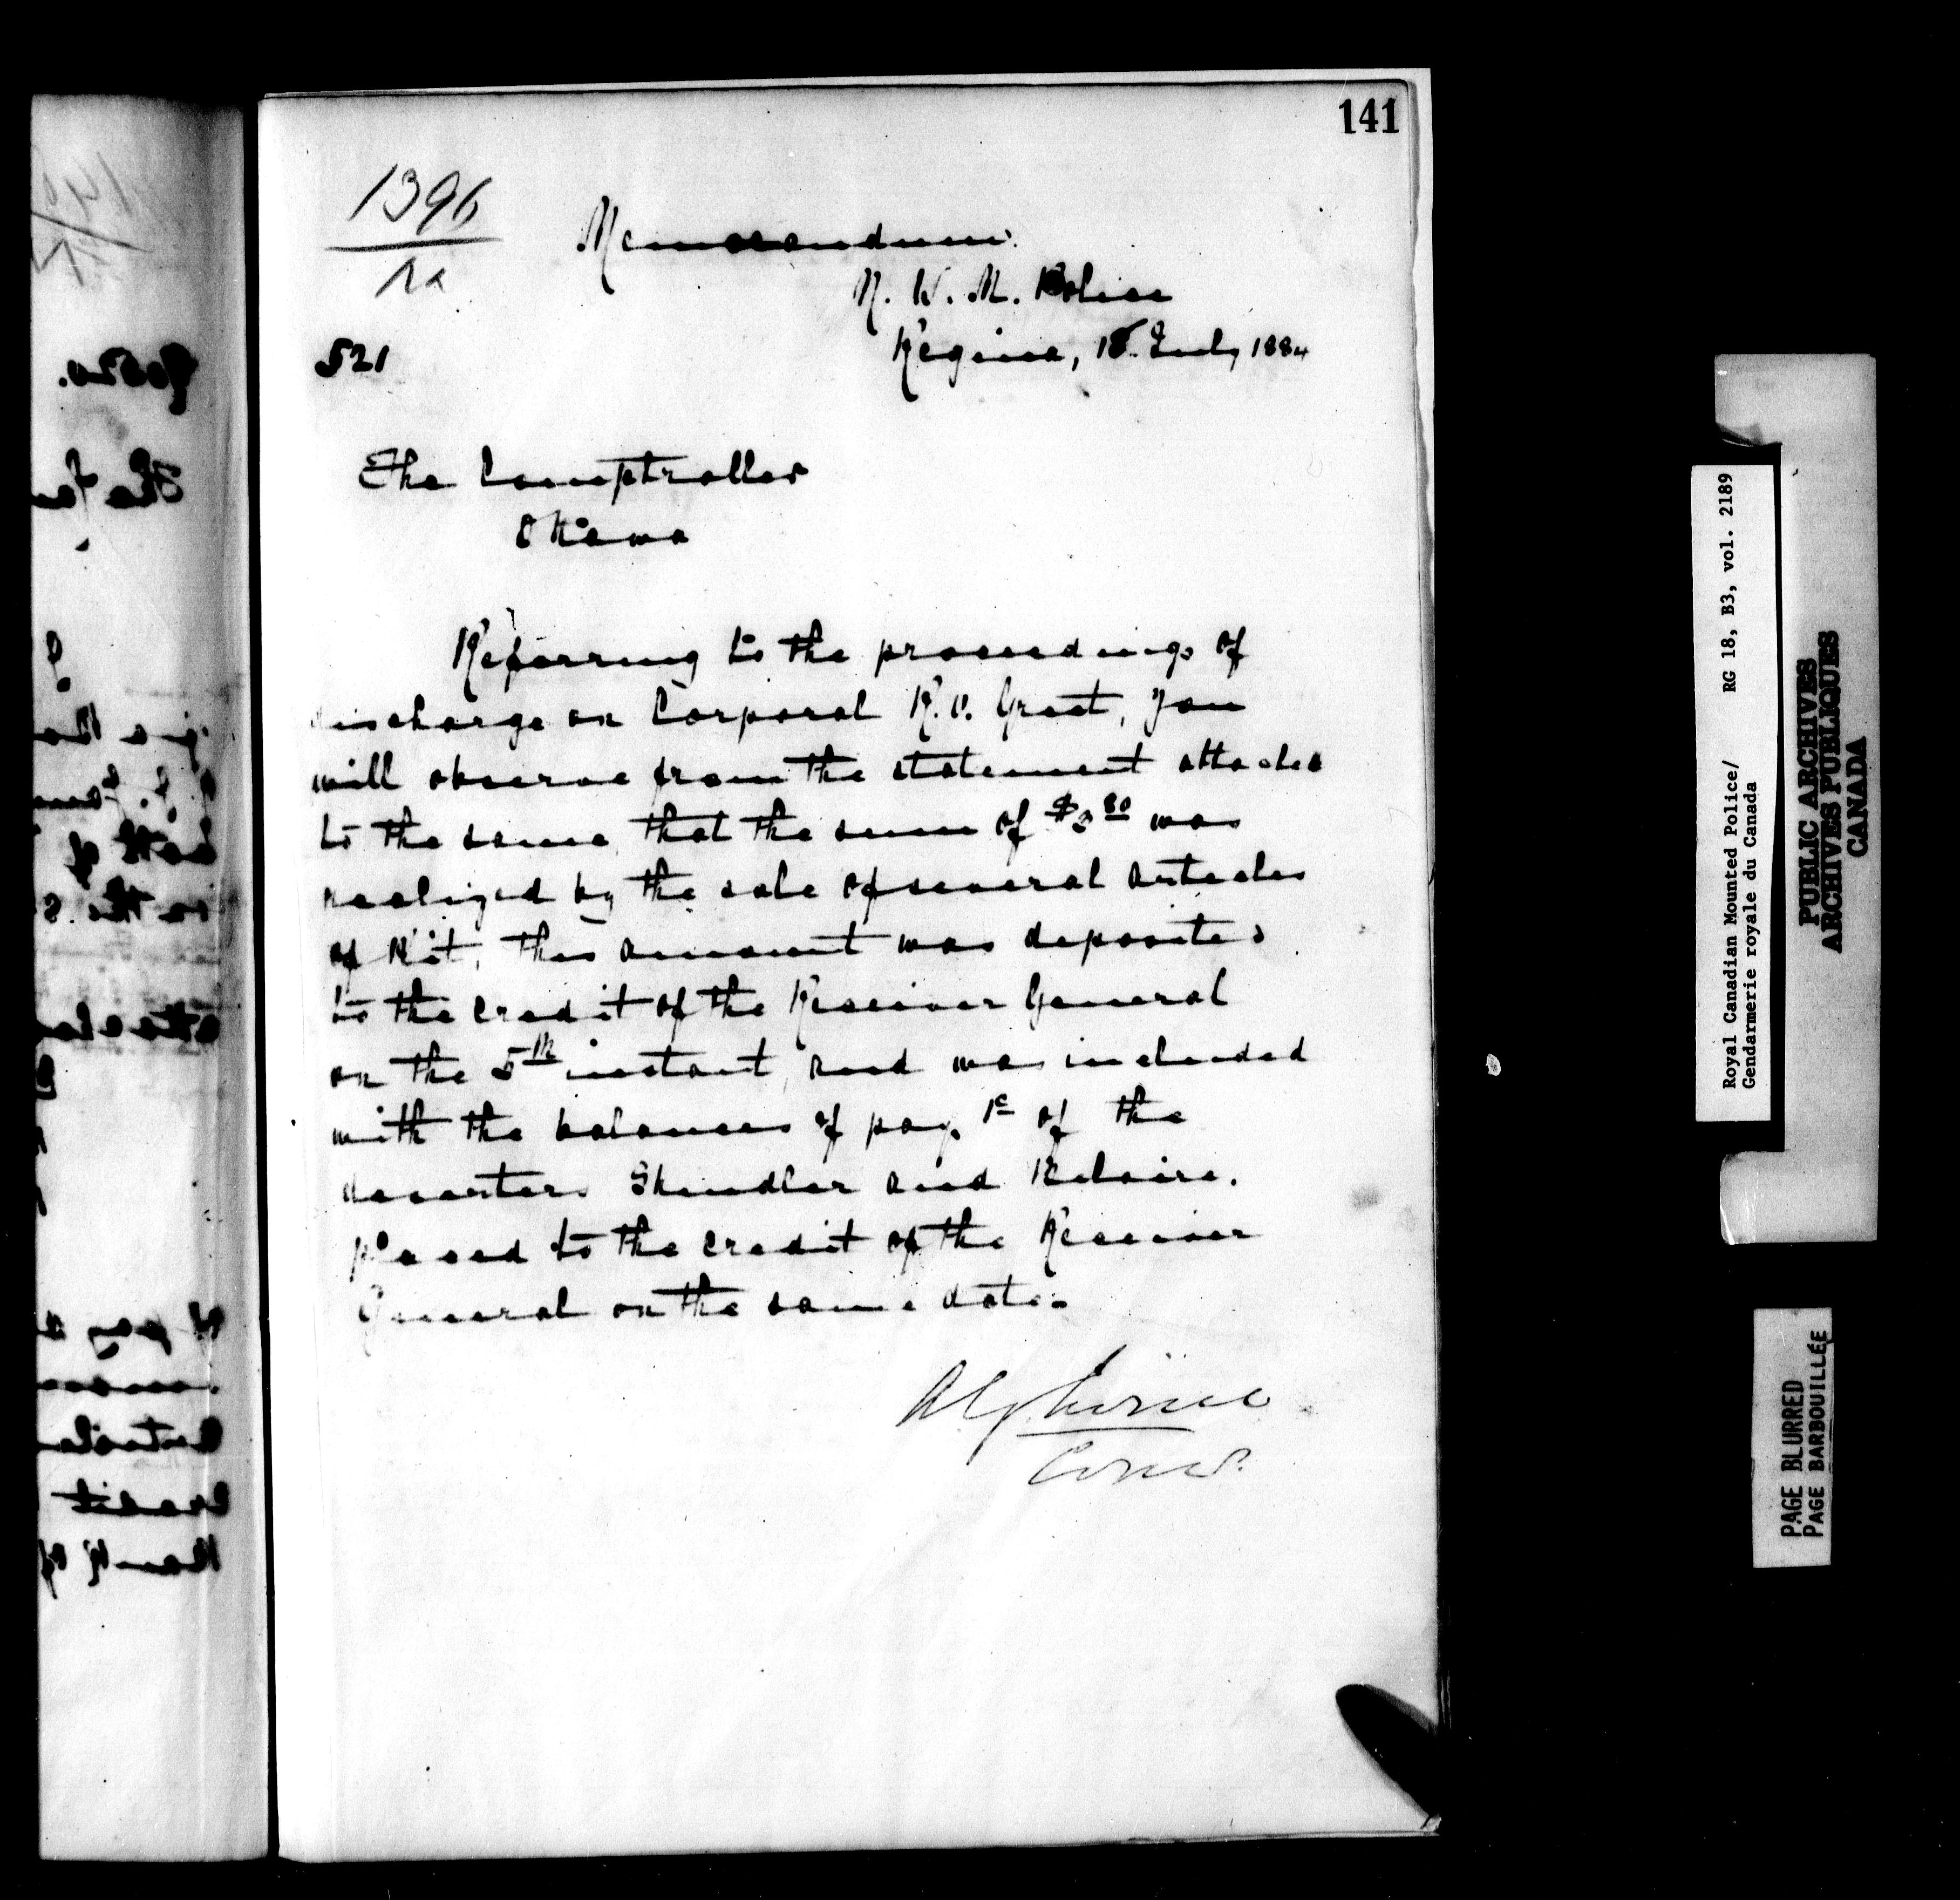 141
1396
Memorandum
N. W. M. Police
521
Regina, 18 July 1884
The Comptroller
Ottawa
Referring to the proceedings of
discharge on Corporal R. Grant, you
will observe from the statement attached
to the same that the sum of was
realized by the sale of several articles
of Kit, this amount was deposited
to the credit of the Receiver General
on the 5th instant, and was included
with the balances of pay, of the
deserters and
placed to the credit of the Receiver
General on the same date.
AG Irvine
Comr.
Royal Canadian Mounted Police/ RG 18, B3, vol. 2189
Gendarmerie royale du Canada
PUBLIC ARCHIVES
ARCHIVES PUBLIQUES
CANADA
PAGE BLURRED
PAGE BARBOUILLÉE